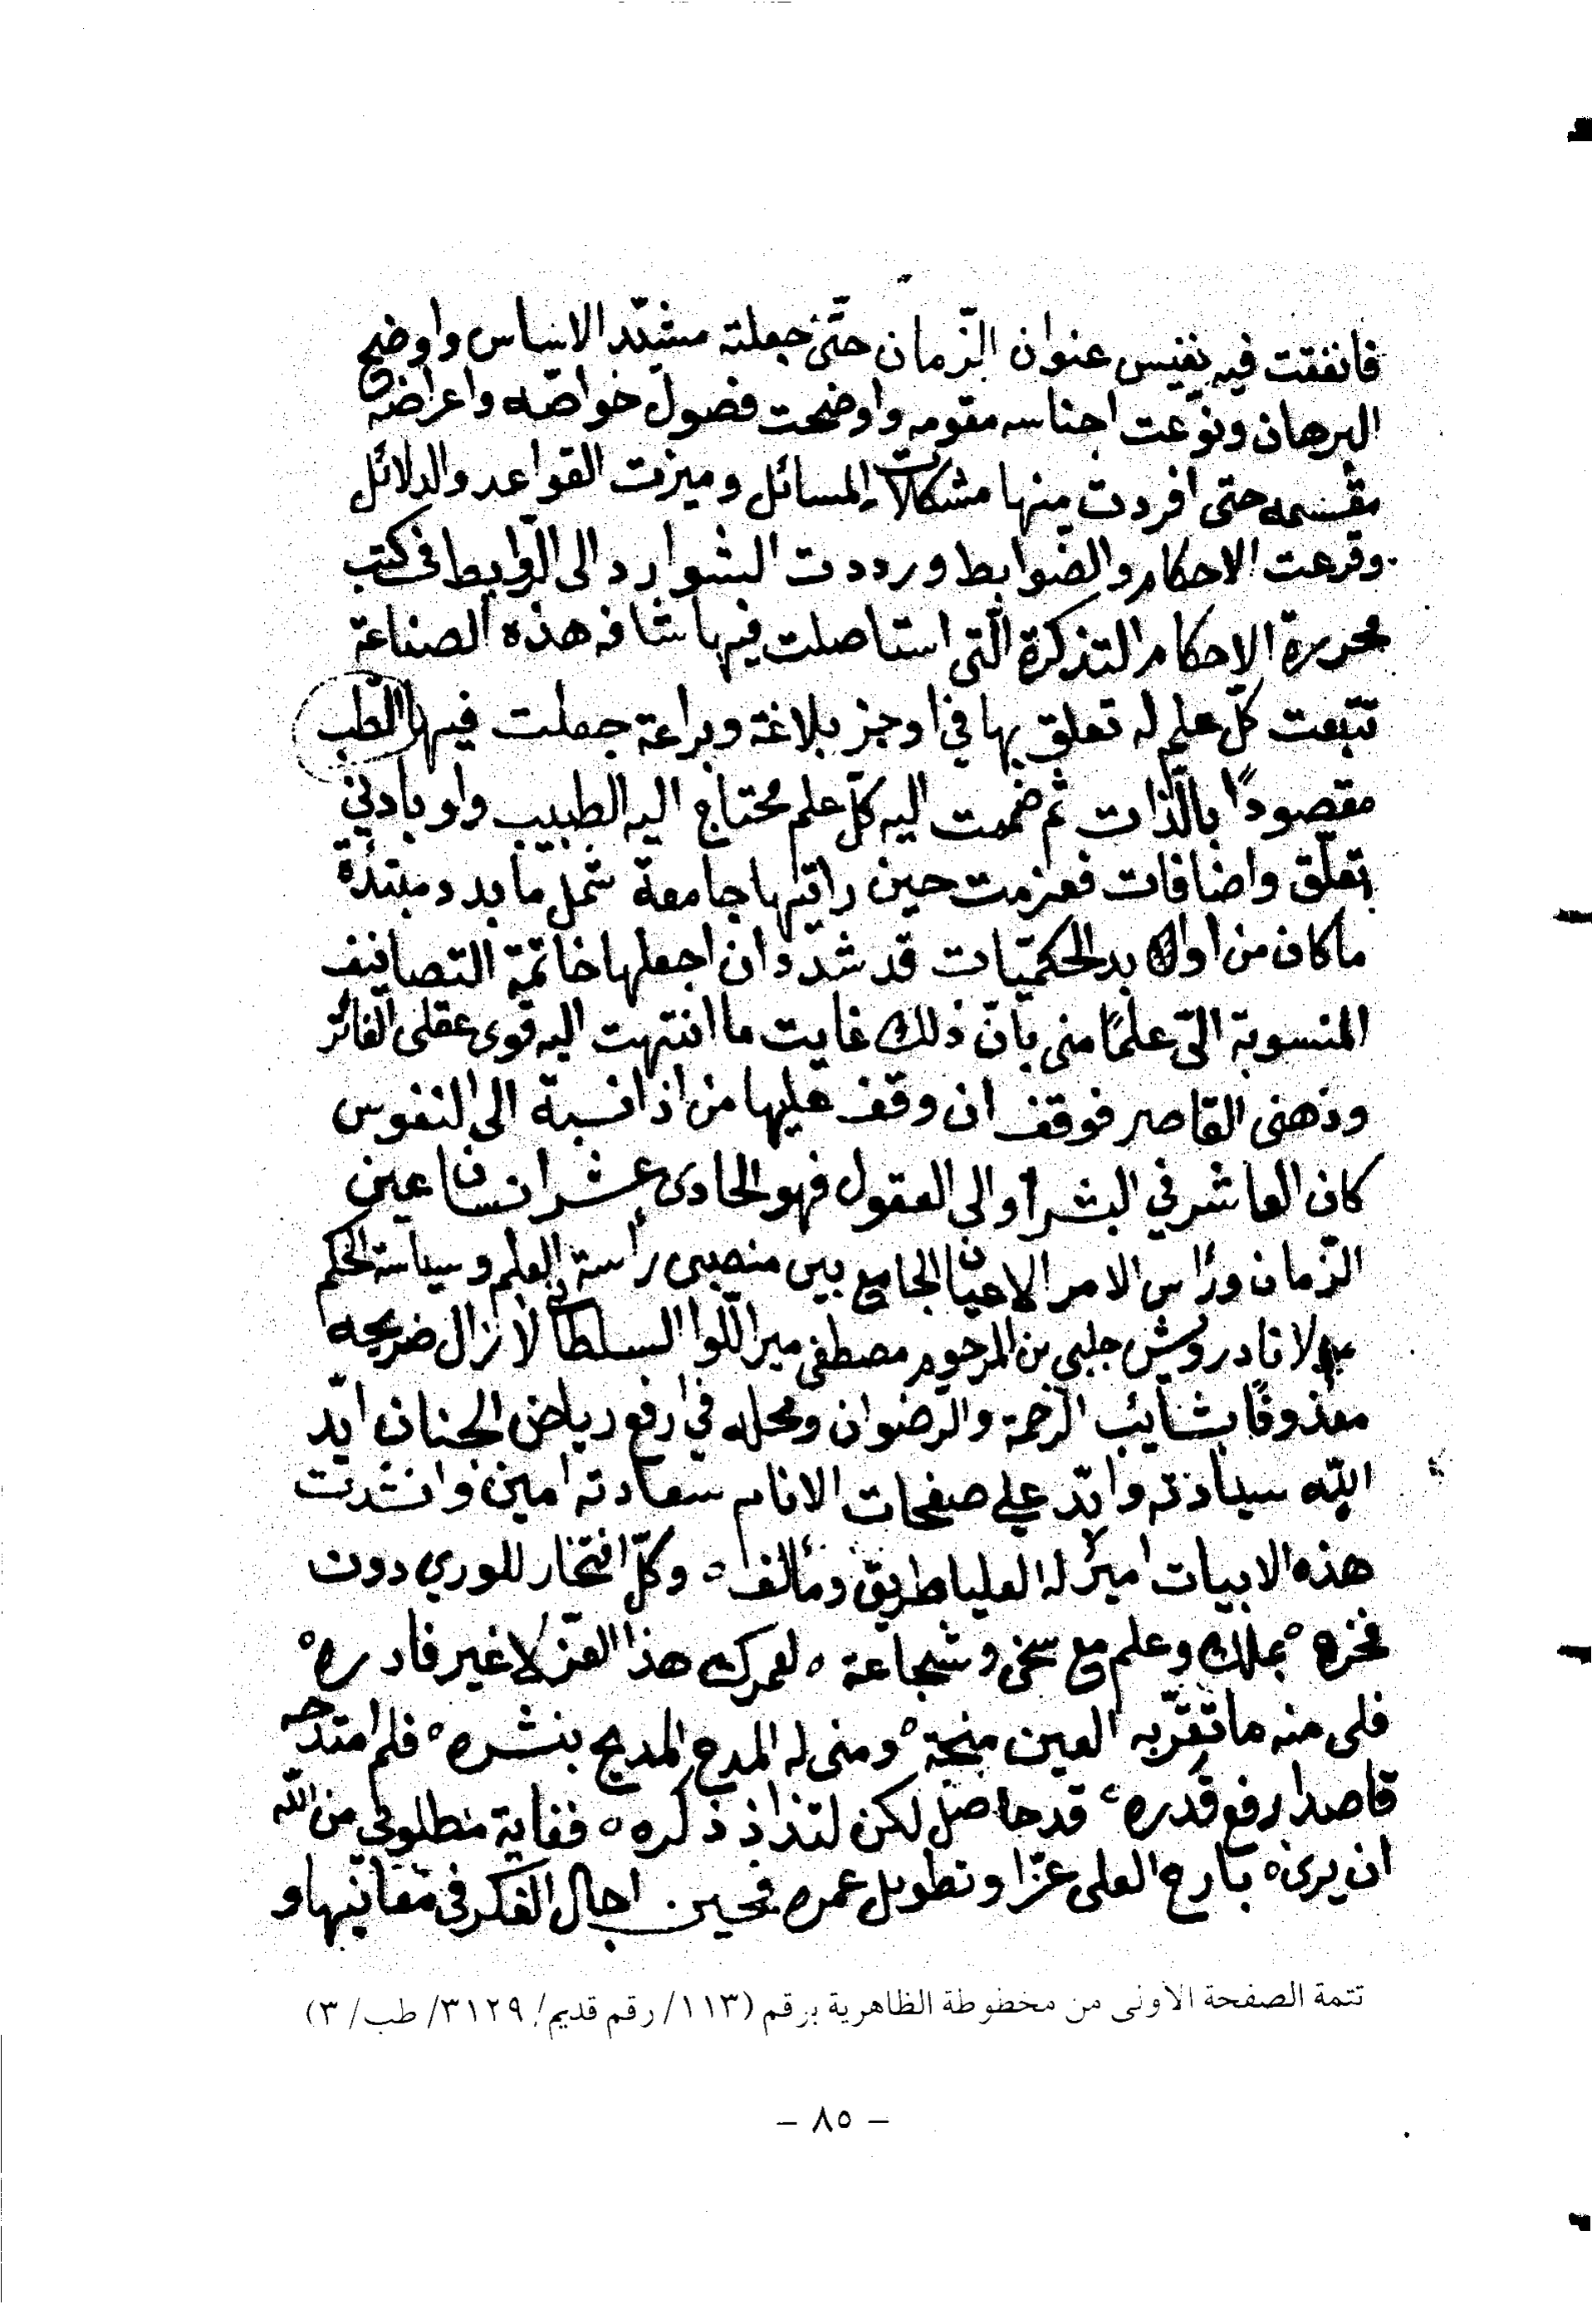 فانفقت فيه نفيس عنوان الزّمان حتّى جعلته مشيّد الاساس واوضح
البرهان ونوّعت اجناسه مقومه واوضحت فصول خواصّه واعراضه
مقسمه حتى افردت منها مشكلات المسائل وميزت القواعد والدلائل
وفرعت الاحكام والضوابط ورددت الشوارد الى الرّوابط فى كتب
محررة الاحكام التذكرة الّتى استاصلت فيها شافه هذه الصناعة
تتبعت كلّ علم له تعلق بها في اوجز بلاغة وبراعة جعلت فيها الطب
مقصودًا بالذّات ثم ضممت اليه كلّ علم محتاج اليه الطبيب ولو بادنى
تعلّق واضافات فعزمت حين رايتها جامعة شمل ما بدد ومبتدئة
ما كان من اوابد الحكميّات قد شدد ان اجعلها خاتمة التصانيف
المنسوبة الىّ علمًا منى بانّ ذلك غايت ما انتهت اليه قوى عقلى الفاتر
وذهنى القاصر فوقف ان وقف عليها من اذا نسبة الى النفوس
كان العاشر في البشر أو الى العقول فهو الحادى عشر انسان عين
الزّمان ورأس الامر الاعيان الجامع بين منصبى رأسة العلم وسياسة الحكم
مولانا درويش جلبي بن المرحوم مصطفى مير اللّوا السلطانى لا زال ضريحه
مغذوقًا بشآئب الرّحمة والرّضوان ومحله في ارفع رياض الجنان ايّد
اللّه سيادته وابّد على صفحات الانام سعادته امين وانشدت
هذه الابيات اميرٌ له العليا طريق ومألف ه وكلّ افتخار للورى دون
فخره ه بملك وعلم مع سخى وشجاعة ه لعمرك هذا العزّ لا غير فادره ه
فلى منه ما تقرّ به العين منحة ه ومنى له المدح المدبج بنشره ه فلم امتدحه
قاصدا رفع قدره ه قد حاصل لكن لتذاذ ذكره ه فغاية مطلوبى من اللّه
ان يرى ه بارج العلى عزّا وتطويل عمره فحين اجال الفكر فى معانيها و
تتمة الصفحة الأولى من مخطوطة الظاهرية برقم (١١٣/ رقم قديم/ ٣١٢٩/ طب/ ٣)
– ٨٥ –